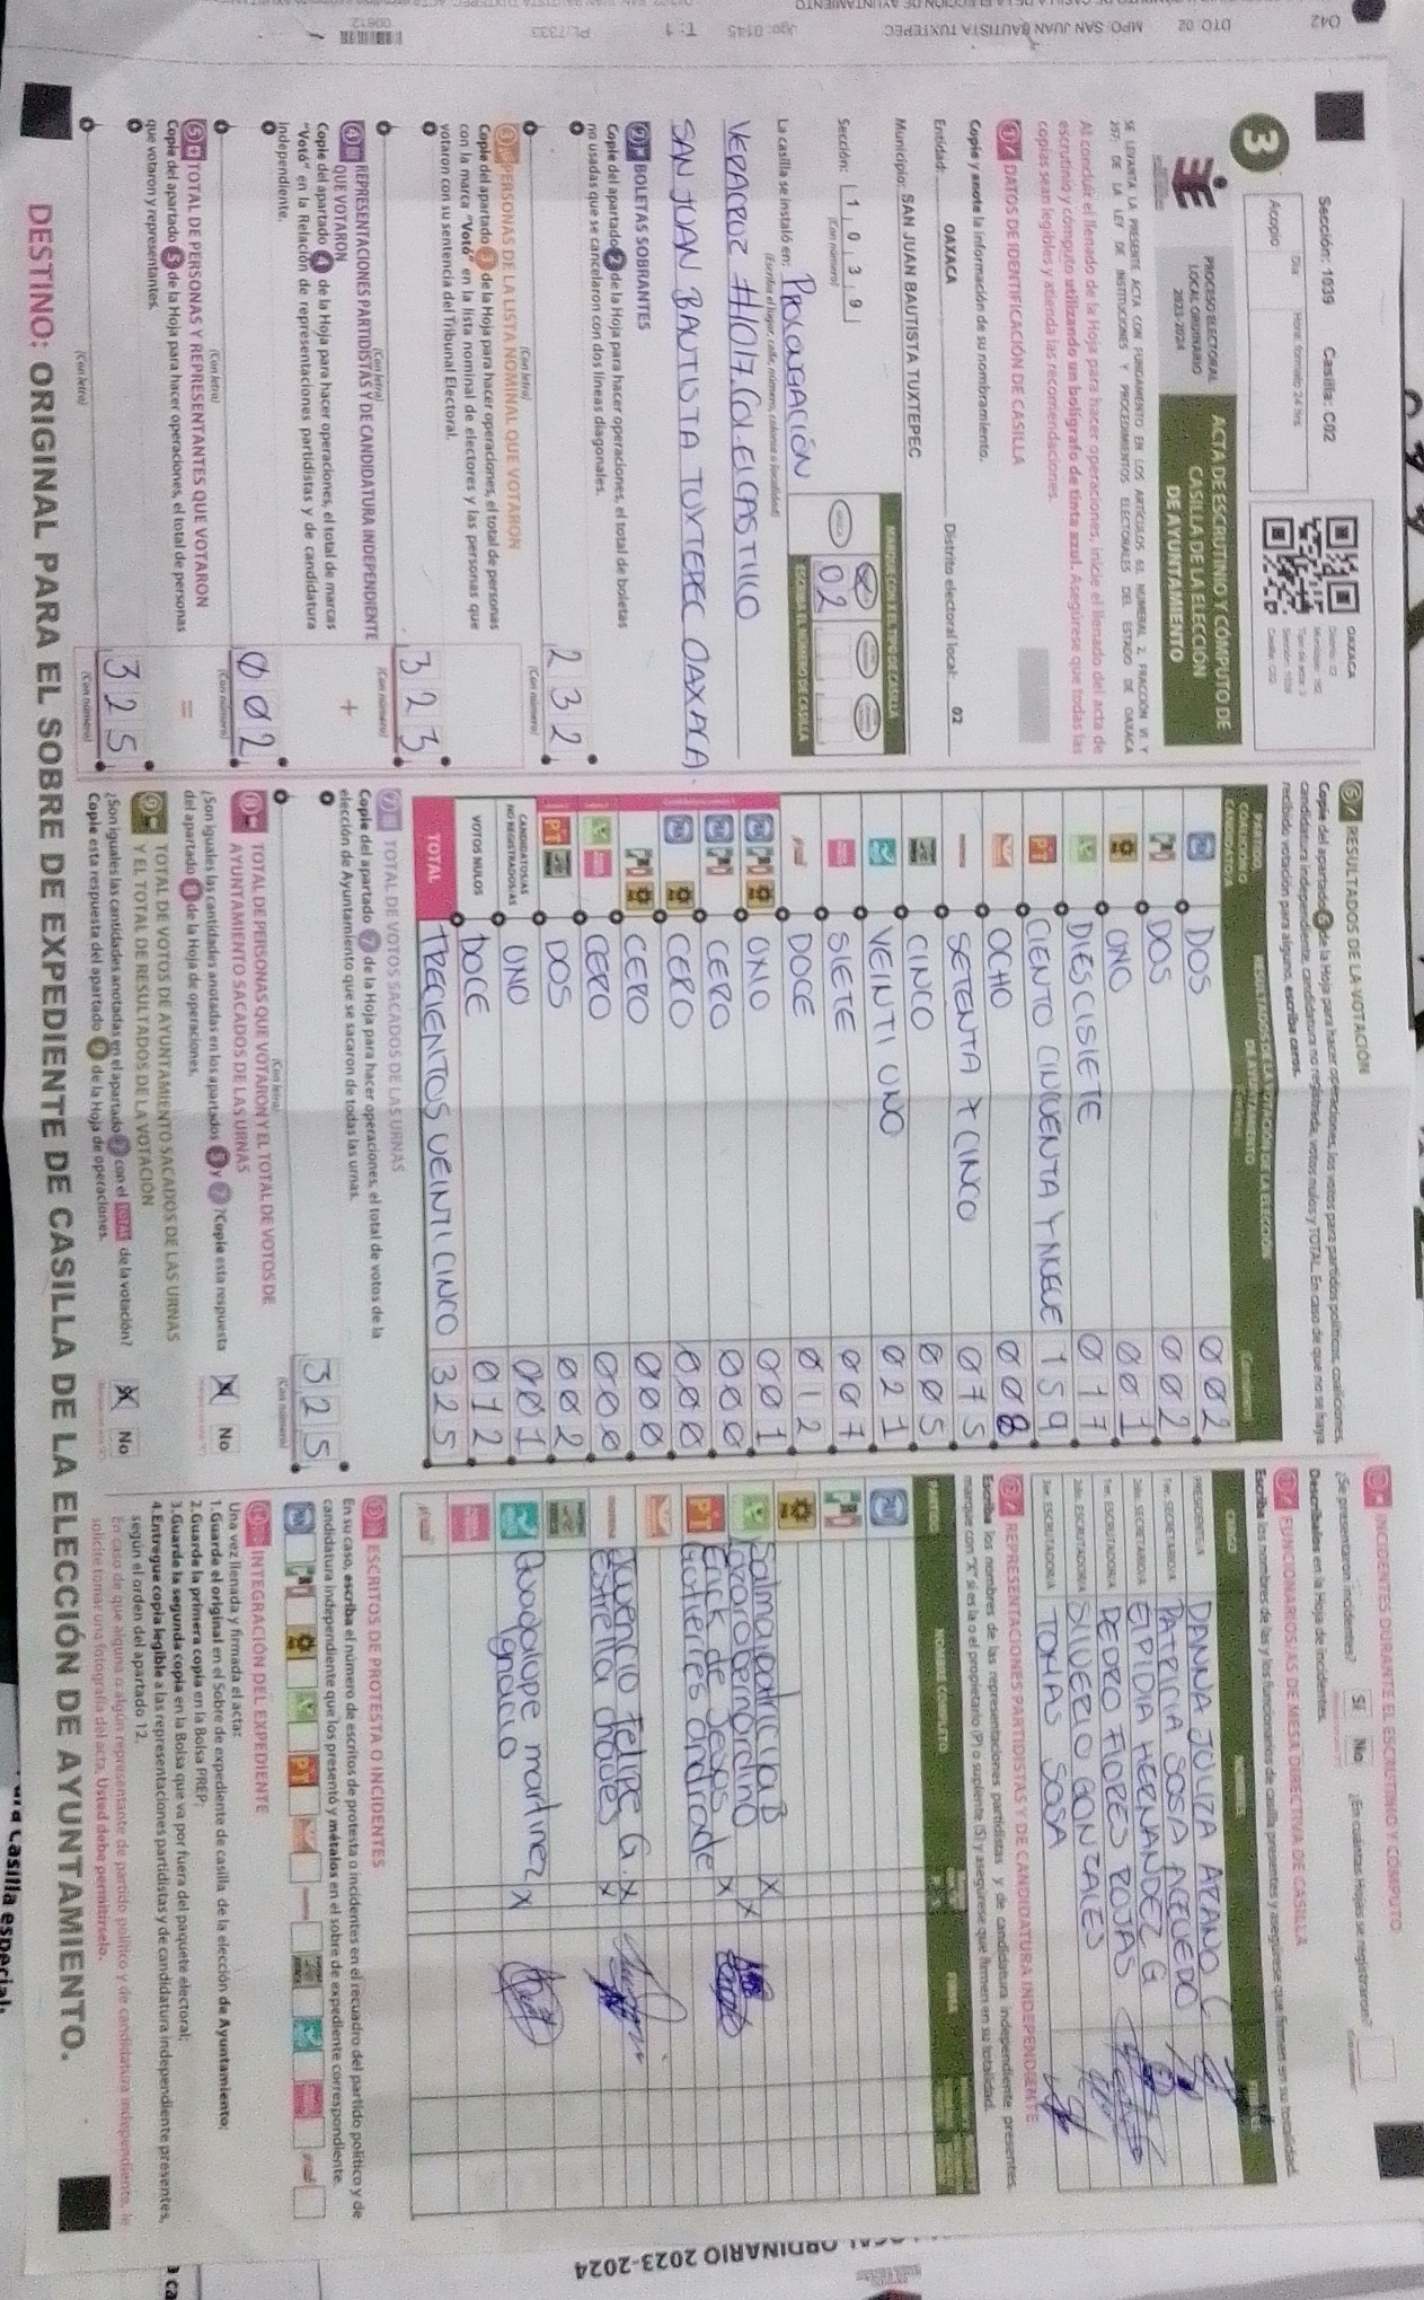 Sección: 1039 Casilla: C02
Acopio
Día
Hora: formato 24 hrs
OAXACA
3
PROCESO ELECTORAL
LOCAL ORDINARIO
2023-2024
ACTA DE ESCRUTINIO Y CÓMPUTO DE
CASILLA DE LA ELECCIÓN
DE AYUNTAMIENTO
SE LEVANTA LA PRESENTE ACTA CON FUNDAMENTO EN LOS ARTÍCULOS 63, NUMERAL 2, FRACCIÓN VI Y
257, DE LA LEY DE INSTITUCIONES Y PROCEDIMIENTOS ELECTORALES DEL ESTADO DE OAXACA
Al concluir el llenado de la Hoja para hacer operaciones, inicie el llenado del acta de
escrutinio y cómputo utilizando un bolígrafo de tinta azul. Asegúrese que todas las
copias sean legibles y atienda las recomendaciones.
1 DATOS DE IDENTIFICACIÓN DE CASILLA
Copie y anote la información de su nombramiento.
Entidad: OAXACA Distrito electoral local: 02
Municipio: SAN JUAN BAUTISTA TUXTEPEC
Sección: 1 0 3 9
(Con número)
MARQUE CON X EL TIPO DE CASILLA
ESCRIBA EL NÚMERO DE CASILLA
02
La casilla se instaló en: PROLONGACIÓN
(Escriba el lugar, calle, número, colonia o localidad)
VERACRUZ #1017. COL. EL CASTILLO
SAN JUAN BAUTISTA TUXTEPEC OAXACA.
2 BOLETAS SOBRANTES
Copie del apartado 2 de la Hoja para hacer operaciones, el total de boletas
no usadas que se cancelaron con dos líneas diagonales.
232
(Con letra) (Con número)
3 PERSONAS DE LA LISTA NOMINAL QUE VOTARON
Copie del apartado 3 de la Hoja para hacer operaciones, el total de personas
con la marca "Votó" en la lista nominal de electores y las personas que
votaron con su sentencia del Tribunal Electoral.
323
(Con letra) (Con número)
4 REPRESENTACIONES PARTIDISTAS Y DE CANDIDATURA INDEPENDIENTE
QUE VOTARON
+
Copie del apartado 4 de la Hoja para hacer operaciones, el total de marcas
"Votó" en la Relación de representaciones partidistas y de candidatura
independiente.
002
(Con letra) (Con número)
5 TOTAL DE PERSONAS Y REPRESENTANTES QUE VOTARON
=
Copie del apartado 5 de la Hoja para hacer operaciones, el total de personas
que votaron y representantes.
325
(Con letra) (Con número)
6 RESULTADOS DE LA VOTACIÓN
Copie del apartado 6 de la Hoja para hacer operaciones, los votos para partidos políticos, coaliciones,
candidatura independiente, candidatura no registrada, votos nulos y TOTAL. En caso de que no se haya
recibido votación para alguno, escriba ceros.
PARTIDO, COALICIÓN O CANDIDATO/A
RESULTADOS DE LA VOTACIÓN DE LA ELECCIÓN
DE AYUNTAMIENTO
DOS 002
DOS 002
UNO 001
DIESCISIETE 017
PT CIENTO CINCUENTA Y NUEVE 159
OCHO 008
morena SETENTA Y CINCO 075
CINCO 005
VEINTI UNO 021
SIETE 007
DOCE 012
UNO 001
CERO 000
CERO 000
CERO 000
CERO 000
PT DOS 002
CANDIDATOS/AS
NO REGISTRADOS/AS UNO 001
VOTOS NULOS DOCE 012
TOTAL TRECIENTOS VEINTI CINCO 325
7 TOTAL DE VOTOS SACADOS DE LAS URNAS
Copie del apartado 7 de la Hoja para hacer operaciones, el total de votos de la
elección de Ayuntamiento que se sacaron de todas las urnas.
325
(Con letra) (Con número)
8 TOTAL DE PERSONAS QUE VOTARON Y EL TOTAL DE VOTOS DE
AYUNTAMIENTO SACADOS DE LAS URNAS
¿Son iguales las cantidades anotadas en los apartados 5 y 7? Copie esta respuesta
del apartado 8 de la Hoja de operaciones.
X No
9 TOTAL DE VOTOS DE AYUNTAMIENTO SACADOS DE LAS URNAS
Y EL TOTAL DE RESULTADOS DE LA VOTACIÓN
¿Son iguales las cantidades anotadas en el apartado 7 con el TOTAL de la votación?
Copie esta respuesta del apartado 9 de la Hoja de operaciones.
X No
10 INCIDENTES DURANTE EL ESCRUTINIO Y CÓMPUTO
¿Se presentaron incidentes? Sí No ¿En cuántas Hojas se registraron?
Descríbalos en la Hoja de Incidentes.
11 FUNCIONARIOS/AS DE MESA DIRECTIVA DE CASILLA
Escriba los nombres de las y los funcionarios de casilla presentes y asegúrese que firmen en su totalidad.
CARGO NOMBRES FIRMAS
PRESIDENTE/A DANNA JULIZA ARANO C
1er. SECRETARIO/A PATRICIA SOSA ACEVEDO
2do. SECRETARIO/A ELPIDIA HERNANDEZ G
1er. ESCRUTADOR/A PEDRO FLORES ROJAS
2do. ESCRUTADOR/A SILVERIO GONZALES
3er. ESCRUTADOR/A TOMAS SOSA
12 REPRESENTACIONES PARTIDISTAS Y DE CANDIDATURA INDEPENDIENTE PRESENTES
Escriba los nombres de las representaciones partidistas y de candidatura independiente presentes,
marque con "X" si es la o el propietario (P) o suplente (S) y asegúrese que firmen en su totalidad.
PARTIDO NOMBRE COMPLETO FIRMA
Salma patricia B X
Lazaro bernardino X
PT Erick de Jesus X
Gutierres andrade
morena Juvencio Felipe G. X
estrella chaves X
Guadalupe martinez X
gnacio
13 ESCRITOS DE PROTESTA O INCIDENTES
En su caso, escriba el número de escritos de protesta o incidentes en el recuadro del partido político y de
candidatura independiente que los presentó y métalos en el sobre de expediente correspondiente.
14 INTEGRACIÓN DEL EXPEDIENTE
Una vez llenada y firmada el acta:
1. Guarde el original en el Sobre de expediente de casilla de la elección de Ayuntamiento;
2. Guarde la primera copia en la Bolsa PREP;
3. Guarde la segunda copia en la Bolsa que va por fuera del paquete electoral;
4. Entregue copia legible a las representaciones partidistas y de candidatura independiente presentes,
según el orden del apartado 12.
En caso de que alguna o algún representante de partido político y de candidatura independiente, le
solicite tomar una fotografía del acta, Usted debe permitírselo.
DESTINO: ORIGINAL PARA EL SOBRE DE EXPEDIENTE DE CASILLA DE LA ELECCIÓN DE AYUNTAMIENTO.
042 DTO 02 MPO SAN JUAN BAUTISTA TUXTEPEC Jgo: 0145 T: 1 PL:7333 00612
ORDINARIO 2023-2024
Casilla especial: